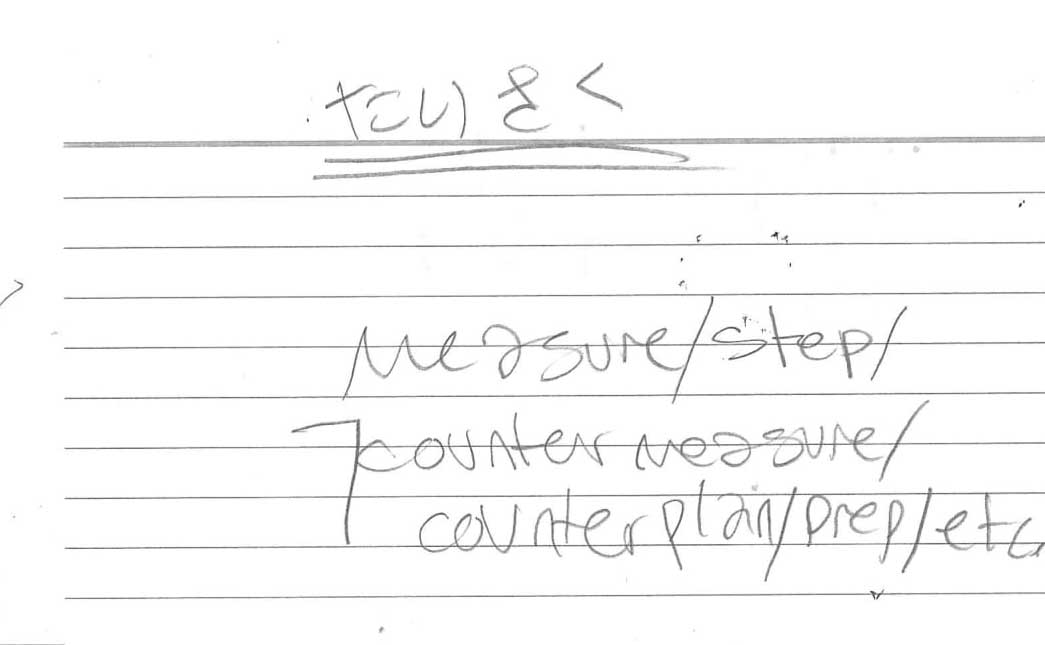 たいさく
measure/step/
countermeasure/
counterplan/prep/etc